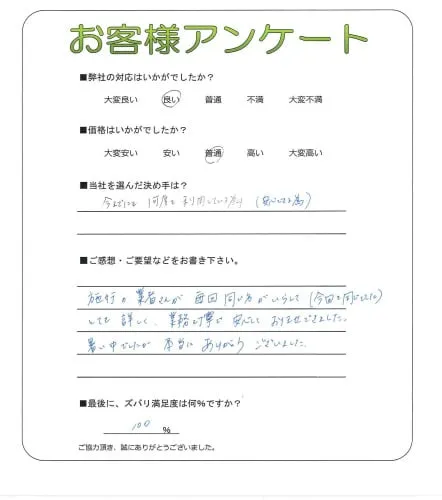 お客様アンケート
■弊社の対応はいかがでしたか?
大変良い 良い 普通 不満 大変不満
■価格はいかがでしたか?
大変安い 安い 普通 高い 大変高い
■当社を選んだ決め手は?
今までにも 何度も 利用している為 (安心できる為)
■ご感想・ご要望などをお書き下さい。
施行の業者さんが 毎回 同じ方がいらして (今回も同じでした)
とても 詳しく、業務も丁寧で 安心して おまかせできました。
暑い中でしたが 本当に ありがとう ございました。
■最後に、ズバリ満足度は何%ですか?
100 %
ご協力頂き、誠にありがとうございました。